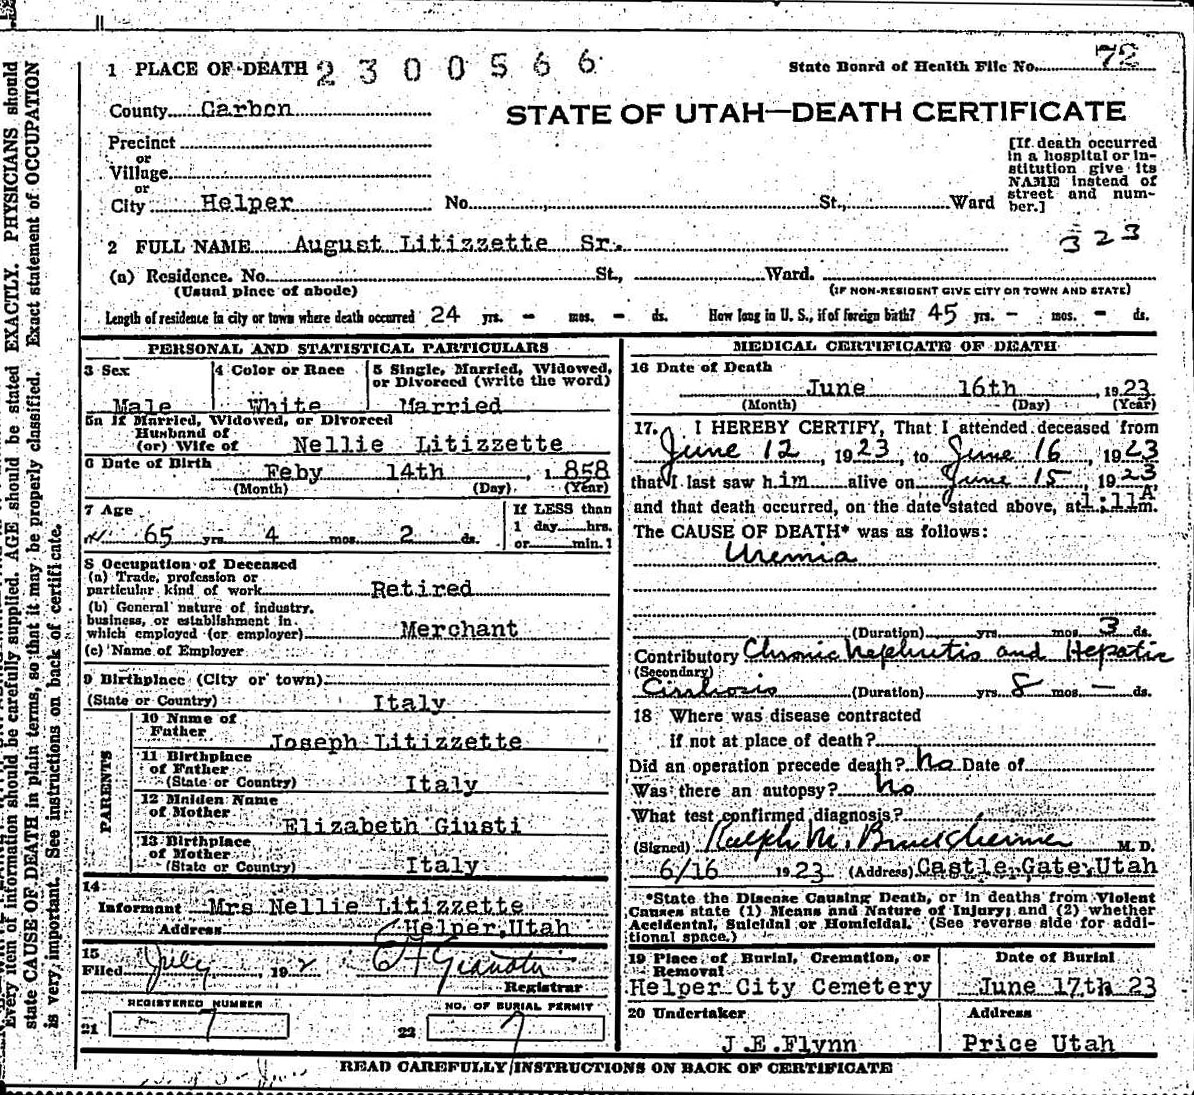 1 PLACE OF DEATH 2300566
State Board of Health File No. 72
County Carbon
STATE OF UTAH—DEATH CERTIFICATE
Precinct
or
Village
or
City Helper No. St., Ward
[If death occurred
in a hospital or in-
stitution give its
NAME instead of
street and num-
ber.]
2 FULL NAME August Litizzette Sr.
323
(a) Residence. No. St., Ward.
(Usual place of abode) (IF NON-RESIDENT GIVE CITY OR TOWN AND STATE)
Length of residence in city or town where death occurred 24 yrs. - mos. - ds. How long in U. S., if of foreign birth? 45 yrs. - mos. - ds.
PERSONAL AND STATISTICAL PARTICULARS
3 Sex
Male
4 Color or Race
White
5 Single, Married, Widowed,
or Divorced (write the word)
Married
5a If Married, Widowed, or Divorced
Husband of
(or) Wife of Nellie Litizzette
6 Date of Birth Feby 14th, 1858
(Month) (Day) (Year)
7 Age
65 yrs 4 mos. 2 ds.
If LESS than
1 day hrs.
or min.?
8 Occupation of Deceased
(a) Trade, profession or
particular kind of work Retired
(b) General nature of industry,
business, or establishment in
which employed (or employer) Merchant
(c) Name of Employer
9 Birthplace (City or town)
(State or Country) Italy
PARENTS
10 Name of
Father Joseph Litizzette
11 Birthplace
of Father
(State or Country) Italy
12 Maiden Name
of Mother Elizabeth Giusti
13 Birthplace
of Mother
(State or Country) Italy
14
Informant Mrs Nellie Litizzette
Address Helper, Utah
15
Filed July, 192
Registrar
REGISTERED NUMBER
21 7
NO. OF BURIAL PERMIT
22 7
MEDICAL CERTIFICATE OF DEATH
16 Date of Death
June 16th, 1923
(Month) (Day) (Year)
17. I HEREBY CERTIFY, That I attended deceased from
June 12, 1923, to June 16, 1923
that I last saw him alive on June 15, 1923
and that death occurred, on the date stated above, at 1:11 A m.
The CAUSE OF DEATH* was as follows:
Uremia
(Duration) yrs. mos. 3 ds.
Contributory Chronic Nephritis and Hepatic
(Secondary)
Cirrhosis (Duration) yrs. 8 mos. — ds.
18 Where was disease contracted
if not at place of death?
Did an operation precede death? No Date of
Was there an autopsy? No
What test confirmed diagnosis?
(Signed) Ralph M. M. D.
6/16 1923 (Address) Castle Gate, Utah
*State the Disease Causing Death, or in deaths from Violent
Causes state (1) Means and Nature of Injury; and (2) whether
Accidental, Suicidal or Homicidal. (See reverse side for addi-
tional space.)
19 Place of Burial, Cremation, or
Removal
Helper City Cemetery
Date of Burial
June 17th 23
20 Undertaker
J.E.Flynn
Address
Price Utah
READ CAREFULLY INSTRUCTIONS ON BACK OF CERTIFICATE
Every item of information should be carefully supplied. AGE should be stated EXACTLY. PHYSICIANS should
state CAUSE OF DEATH in plain terms, so that it may be properly classified. Exact statement of OCCUPATION
is very important. See instructions on back of certificate.